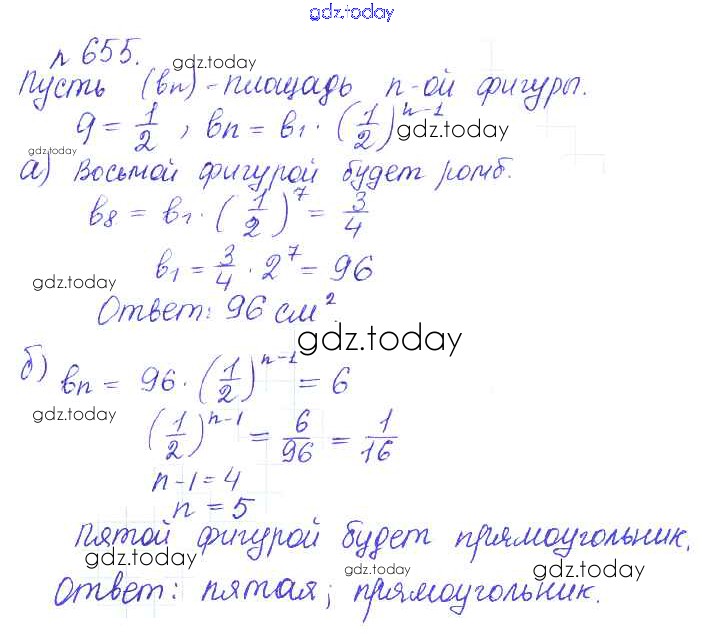 gdz.today
n 655. gdz.today
Пусть (bn) - площадь n-ой фигуры.
q = 1/2, bn = b1 · (1/2)^n-1 gdz.today
gdz.today
а) Восьмой фигурой будет ромб.
b8 = b1 · (1/2)^7 = 3/4
b1 = 3/4 · 2^7 = 96
gdz.today
Ответ: 96 см².
gdz.today
б) bn = 96 · (1/2)^n-1 = 6
gdz.today
(1/2)^n-1 = 6/96 = 1/16
n-1=4
n = 5
Пятой фигурой будет прямоугольник.
gdz.today gdz.today gdz.today
Ответ: пятая; прямоугольник.